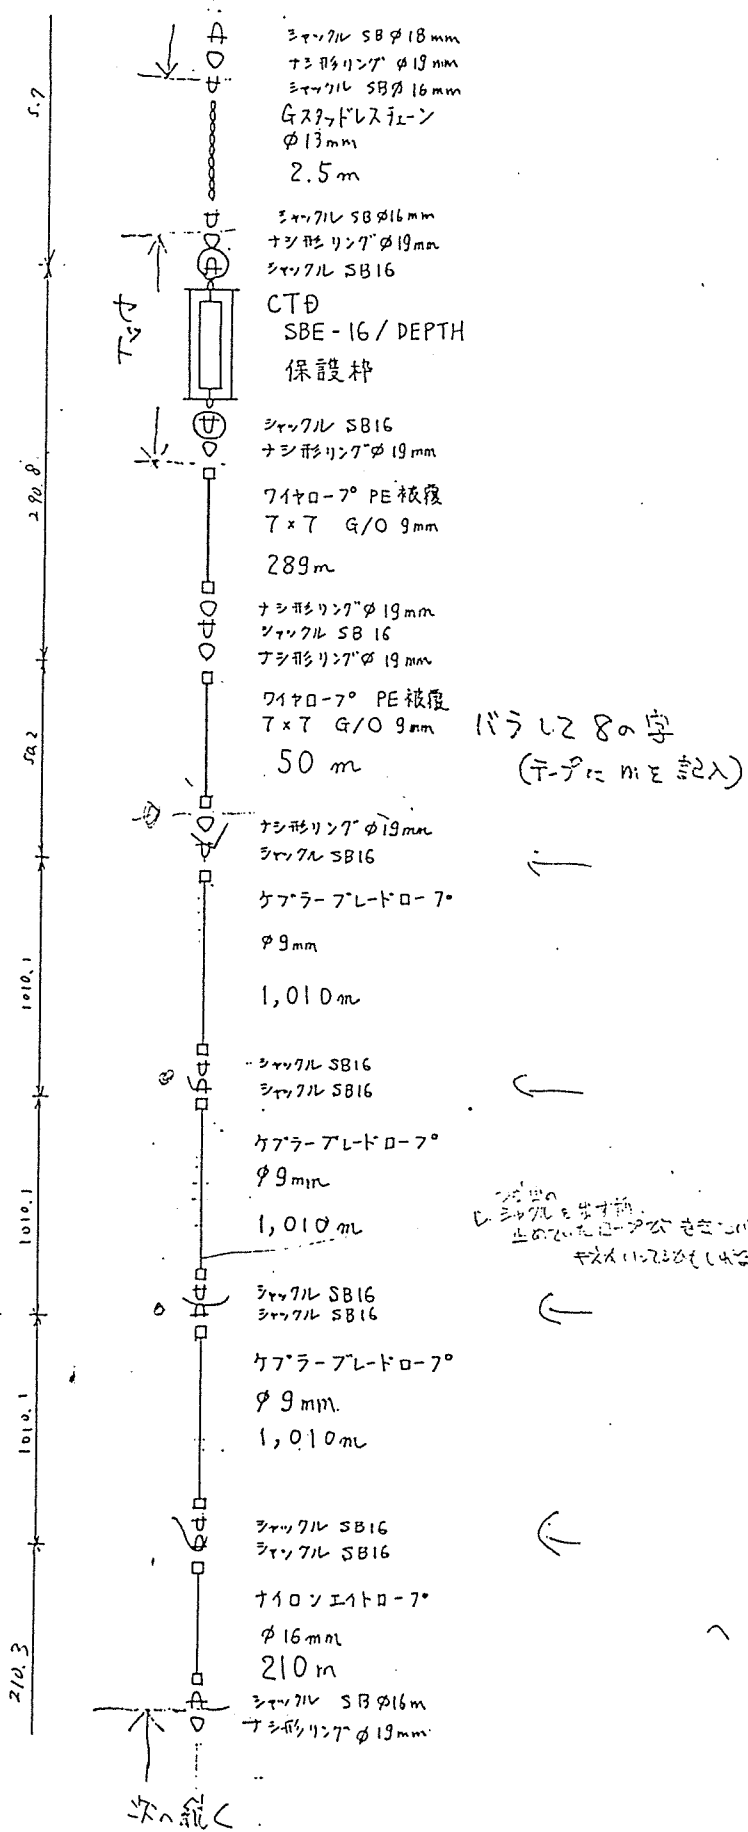 シャックル SB φ18mm
ナシ形リング φ19mm
シャックル SBφ16mm
Gスタッドレスチェーン
φ13mm
2.5m
5.7
シャックル SBφ16mm
ナシ形リングφ19mm
シャックル SB16
CTD
SBE-16/DEPTH
保護枠
シャックル SB16
ナシ形リングφ19mm
290.8
ワイヤロープ PE被覆
7×7 G/O 9mm
289m
ナシ形リングφ19mm
シャックル SB16
ナシ形リングφ19mm
50.2
ワイヤロープ PE被覆
7×7 G/O 9mm
50 m
バラして8の字
(テープにmを記入)
ナシ形リングφ19mm
シャックル SB16
ケブラーブレードロープ
φ9mm
1,010m
1010.1
シャックル SB16
シャックル SB16
ケブラーブレードロープ
φ9mm
1,010m
1010.1
シャックルを出す前
止めていたロープが
シャックル SB16
シャックル SB16
ケブラーブレードロープ
φ9mm.
1,010m
1010.1
シャックル SB16
シャックル SB16
ナイロンエイトロープ
φ16mm
210m
210.3
シャックル SBφ16m
ナシ形リングφ19mm
次へ続く